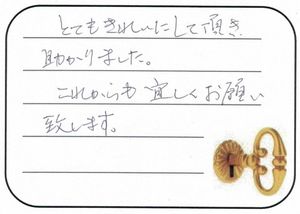 とてもきれいにして頂き
助かりました。
これからも宜しくお願い
致します。